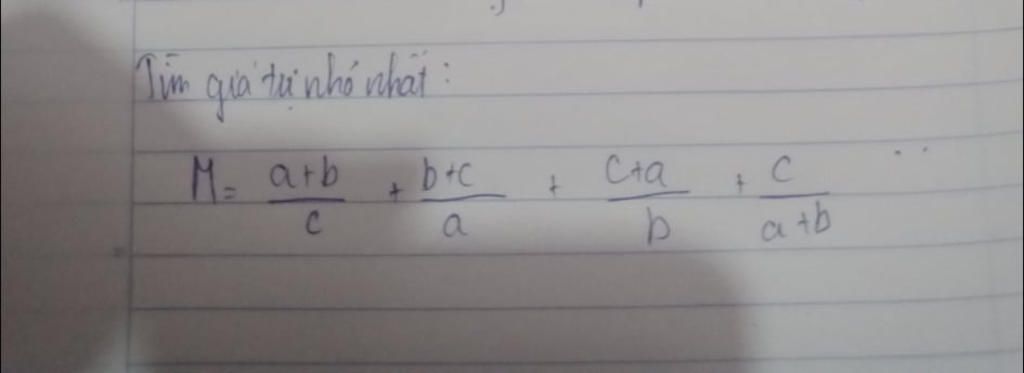 Tìm giá trị nhỏ nhất :
M = a+b/c + b+c/a + c+a/b + c/a+b